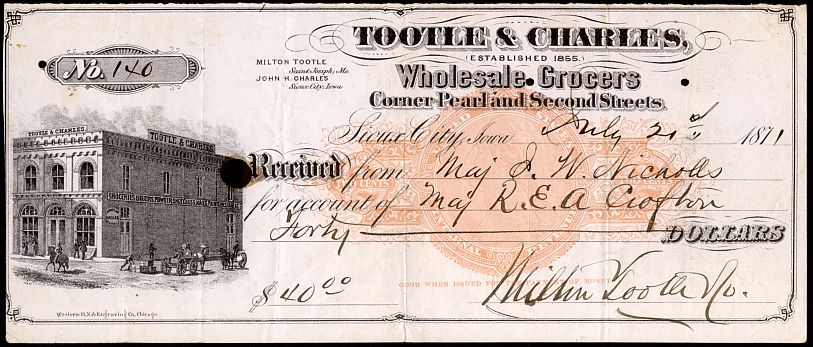 TOOTLE & CHARLES,
(ESTABLISHED 1855.)
MILTON TOOTLE
Saint Joseph, Mo.
JOHN H. CHARLES
Sioux City, Iowa
Wholesale Grocers
Corner Pearl and Second Streets.
No. 140
Sioux City, Iowa July 21st 1871
TOOTLE & CHARLES
TOOTLE & CHARLES
Received from Maj J. W. Nicholls
for account of Maj R. E. A Crofton
Forty DOLLARS
GOOD WHEN ISSUED FOR THE OF MONEY
$40.00
Milton Tootle Co.
Western B.N.& Engraving Co. Chicago.